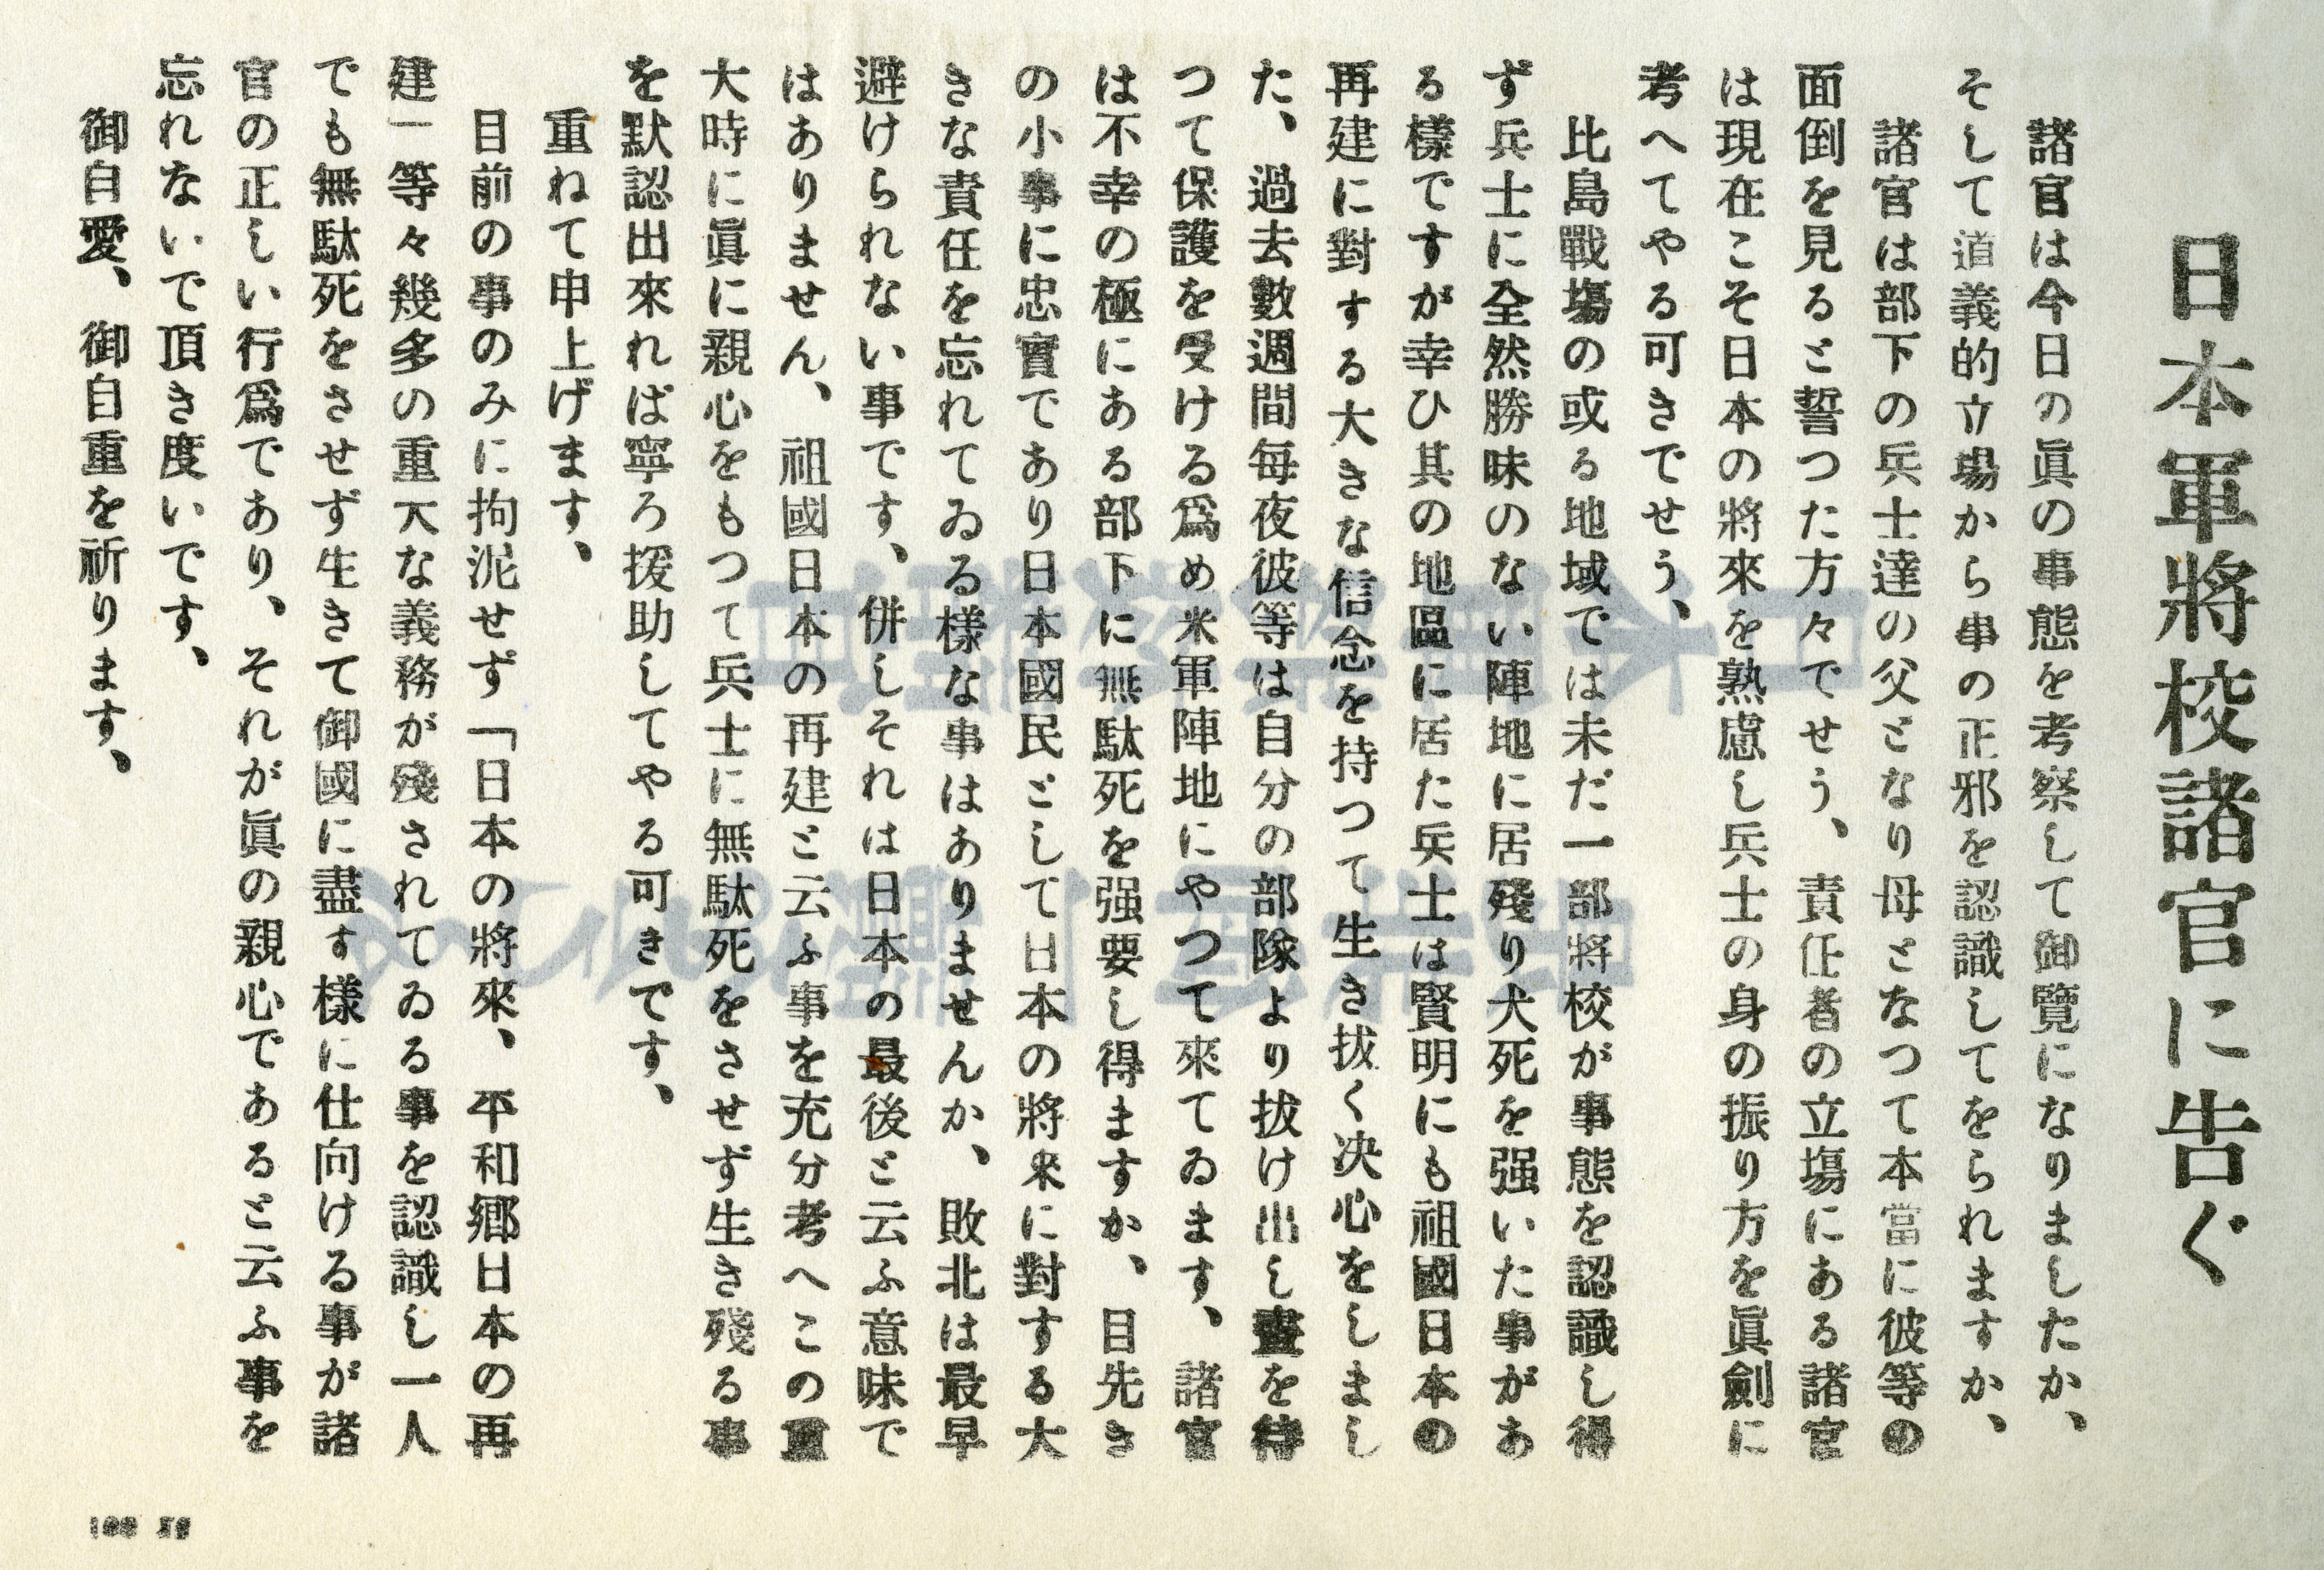 日本軍將校諸官に告ぐ
諸官は今日の眞の事態を考察して御覽になりましたか、
そして道義的立場から事の正邪を認識してをられますか、
諸官は部下の兵士達の父となり母となつて本當に彼等の
面倒を見ると誓つた方々でせう、責任者の立塲にある諸官
は現在こそ日本の將來を熟慮し兵士の身の振り方を眞劍に
考へてやる可きでせう、
比島戰塲の或る地域では未だ一部將校が事態を認識し得
ず兵士に全然勝味のない陣地に居殘り犬死を强いた事があ
る樣ですが幸ひ其の地區に居た兵士は賢明にも祖國日本の
再建に對する大きな信念を持つて生き拔く决心をしまし
た、過去數週間每夜彼等は自分の部隊より拔け出し晝を待
つて保護を受ける爲め米軍陣地にやつて來てゐます、諸官
は不幸の極にある部下に無駄死を强要し得ますか、目先き
の小事に忠實であり日本國民として日本の將來に對する大
きな責任を忘れてゐる樣な事はありませんか、敗北は最早
避けられない事です、併しそれは日本の最後と云ふ意味で
はありません、祖國日本の再建と云ふ事を充分考へこの重
大時に眞に親心をもつて兵士に無駄死をさせず生き殘る事
を默認出來れば寧ろ援助してやる可きです、
重ねて申上げます、
目前の事のみに拘泥せず「日本の將來、平和鄕日本の再
建」等々幾多の重大な義務が殘されてゐる事を認識し一人
でも無駄死をさせず生きて御國に盡す樣に仕向ける事が諸
官の正しい行爲であり、それが眞の親心であると云ふ事を
忘れないで頂き度いです、
御自愛、御自重を祈ります、